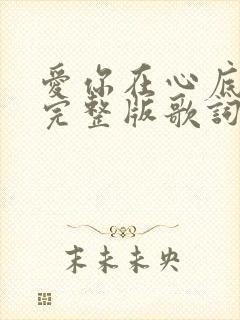 愛你在心底
完整版歌詞
末未未央